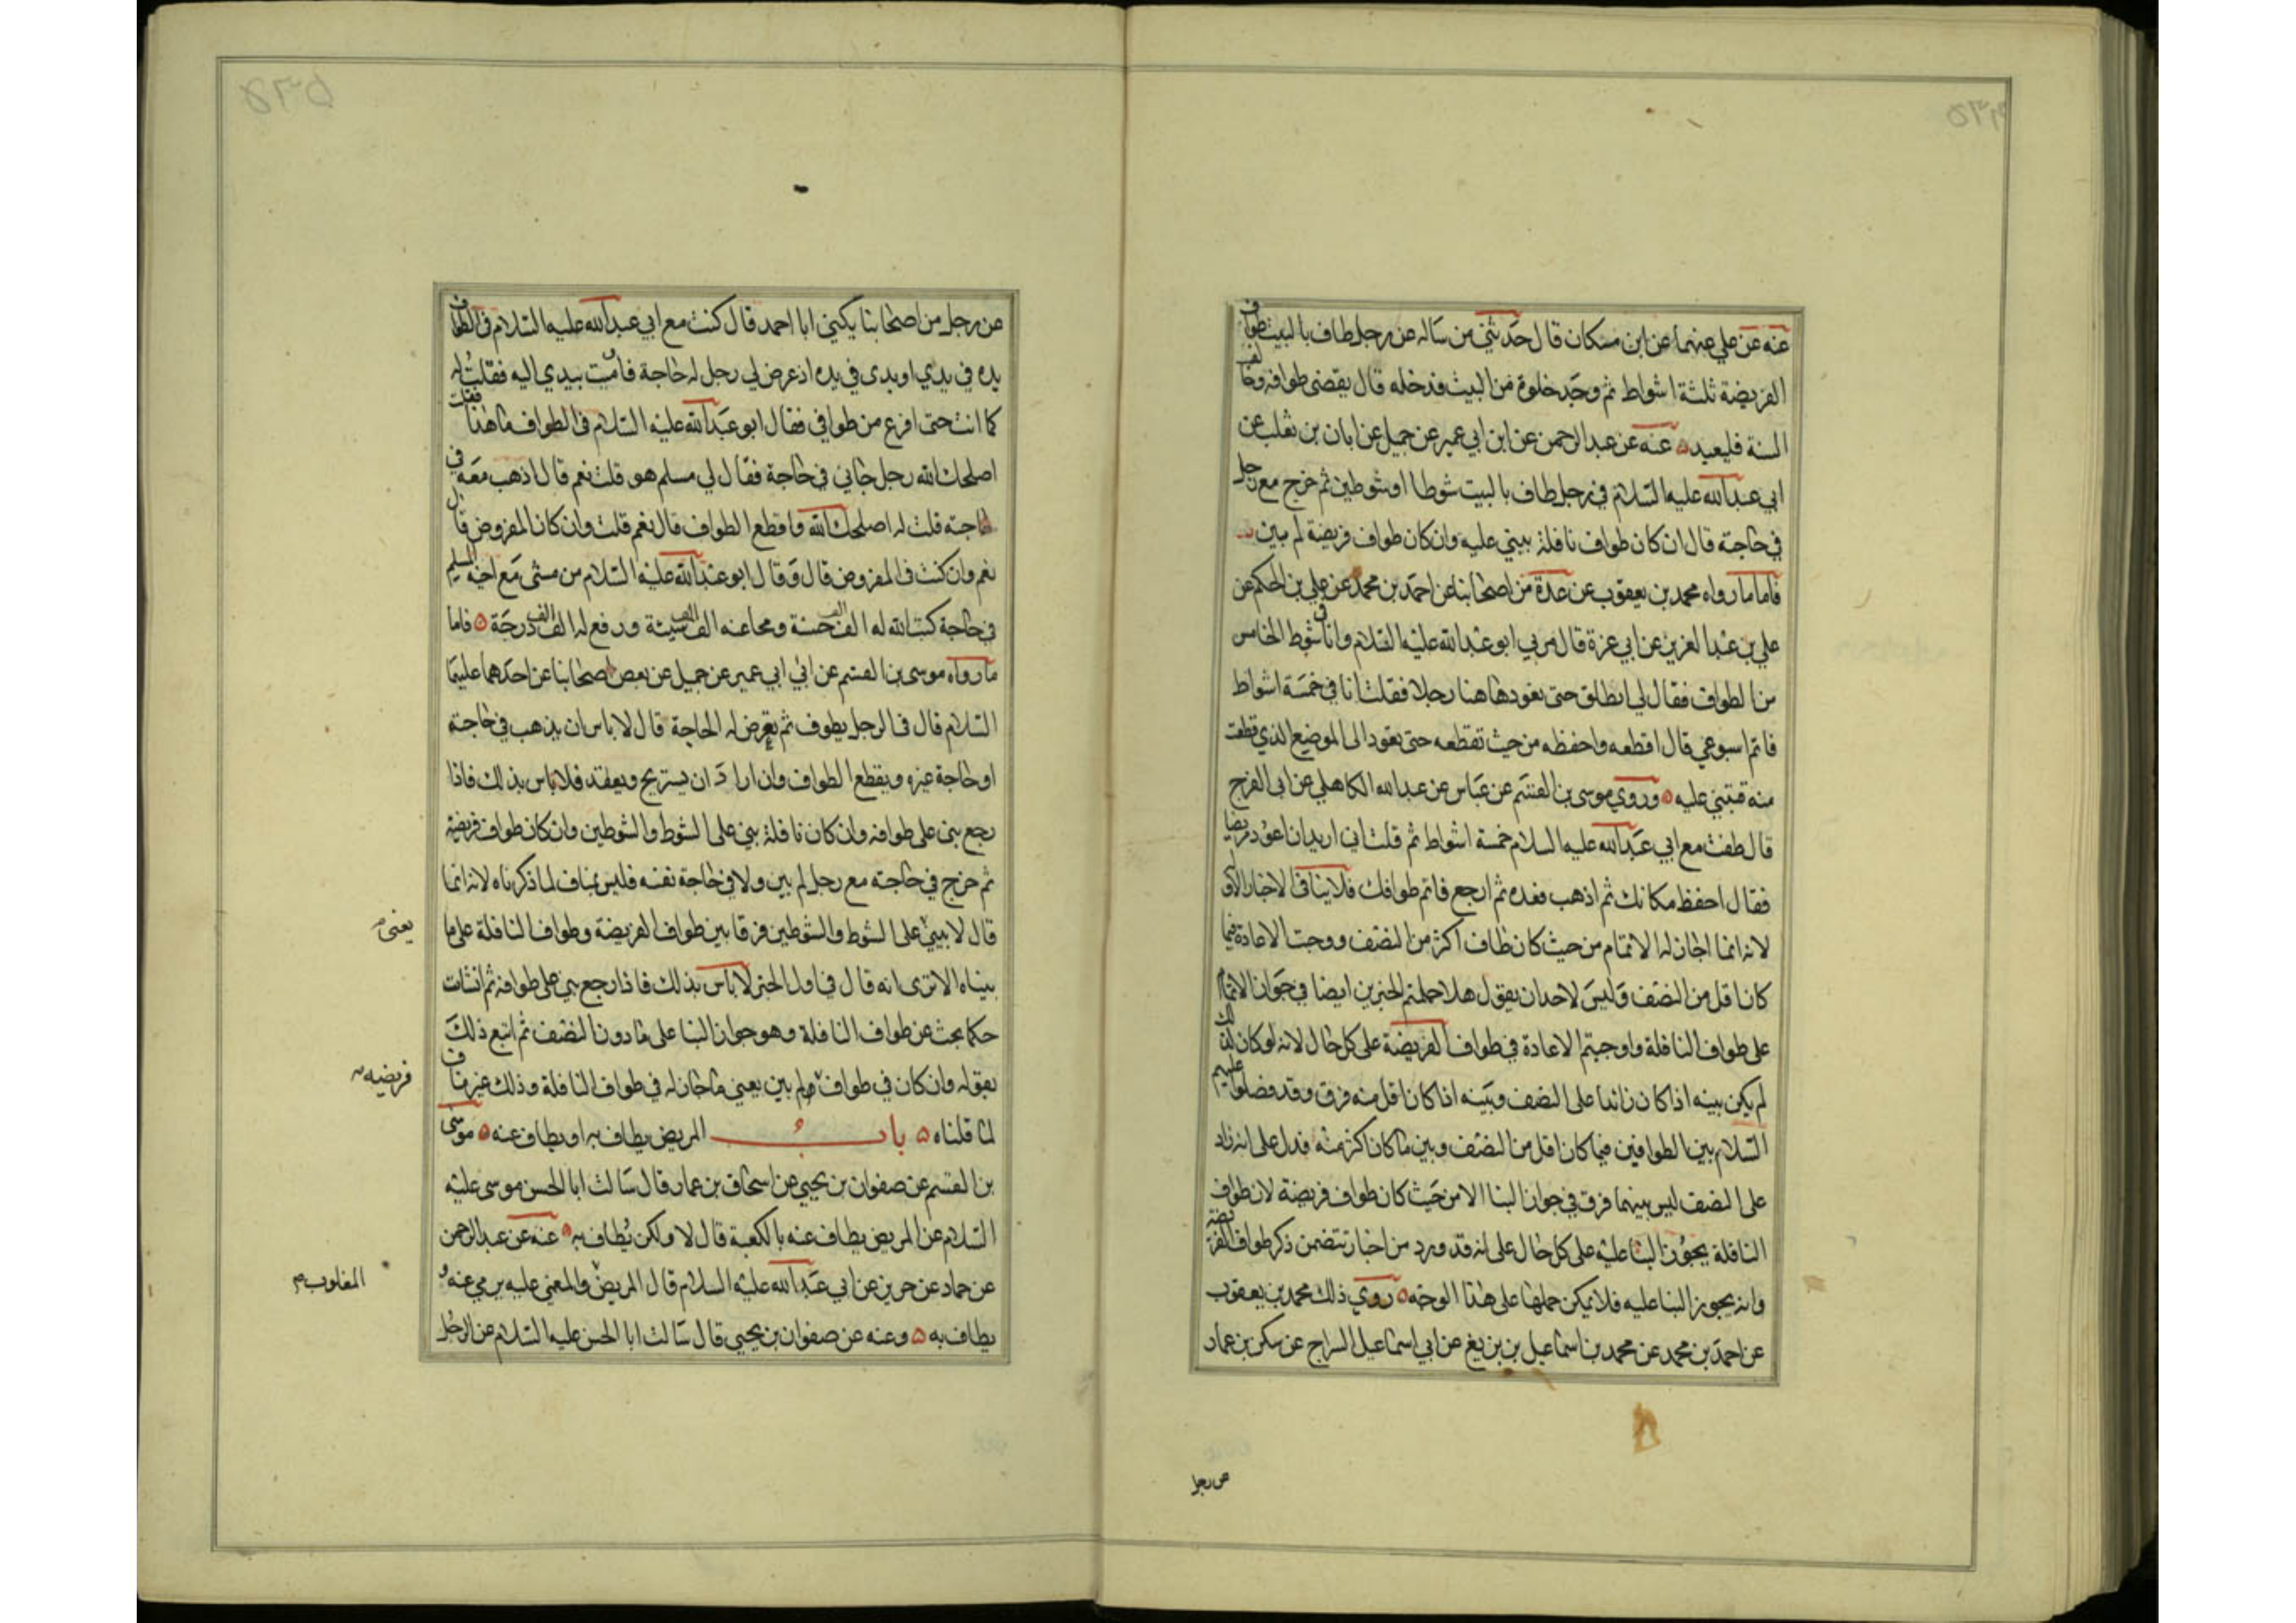 عنه عن علي عنهما عن ابن مسكان قال حدثني من ساله عن رجل طاف بالبيت طواف
الفريضة ثلثة اشواط ثم وجد خلوة من البيت فدخله قال يقضي طوافه وخالف
السنة فليعيد عنه عن عبد الرحمن عن ابن ابي عمير عن جميل عن ابان بن تغلب عن
ابي عبد الله عليه السلام في رجل طاف بالبيت شوطا او شوطين ثم خرج مع رجل
في حاجته قال ان كان طواف نافلة بيني عليه وان كان طواف فريضة لم يبن
فاما ما رواه محمد بن يعقوب عن عدة من اصحابنا عن احمد بن محمد عن علي بن الحكم عن
علي بن عبد العزيز عن ابي عزة قال مر بي ابو عبد الله عليه السلام وانا في شوط الخامس
من الطواف فقال لي انطلق حتى نعود هاهنا رجلا فقلت انا في خمسة اشواط
فاتم اسبوعي قال اقطعه واحفظه من حيث تقطعه حتى تعود الى الموضع الذي قطعت
منه فتبني عليه وروي موسى بن القسم عن عباس عن عبد الله الكاهلي عن ابي الفرج
قال طفت مع ابي عبد الله عليه السلام خمسة اشواط ثم قلت اني اريد ان اعود مريضا
فقال احفظ مكانك ثم اذهب فعده ثم ارجع فاتم طوافك فلا ينافي الاخبار الاولى
لانه انما اجاز له الاتمام من حيث كان طاف اكثر من النصف ووجبت الاعادة فيما
كان اقل من النصف وليس لاحد ان يقول هلا حملتم الخبرين ايضا في جواز الاتمام
على طواف النافلة واوجبتم الاعادة في طواف الفريضة على كل حال لانه لو كان كذلك
لم يكن بينه اذا كان زائدا على النصف وبينه اذا كان اقل منه فرق وقد فصلوا عليهم
السلام بين الطوافين فيما كان اقل من النصف وبين ما كان اكثر منه فدل على انه زاد
على النصف ليس بينهما فرق في جواز البنا الا من حيث كان طواف فريضة لان طواف
النافلة يجوز البنا عليه على كل حال على انه قد ورد من اخبار تتضمن ذكر طواف الفريضة
وانه يجوز البنا عليه فلا يمكن حملها على هذا الوجه روي ذلك محمد بن يعقوب
عن احمد بن محمد عن محمد بن اسماعيل بن بزيغ عن ابي اسماعيل السراج عن سكن بن عمار
عن رجل
عن رجل من اصحابنا يكنى ابا احمد قال كنت مع ابي عبد الله عليه السلام في الطواف
يده في يدي او يدي في يده اذ عرض لي رجل له حاجة فاومت بيدي اليه فقلت له
كما انت حتى افرغ من طوافي فقال ابو عبد الله عليه السلام في الطواف ما هذا فقلت
اصلحك الله رجل جاني في حاجة فقال لي مسلم هو قلت نعم قال اذهب معه في
حاجته قلت له اصلحك الله واقطع الطواف قال نعم قلت وان كان المفروض قال
نعم وان كنت في المفروض قال وقال ابو عبد الله عليه السلام من مشى مع اخيه المسلم
في حاجة كتب الله له الف الف حسنة ومحا عنه الف الف سيئة ورفع له الف الف درجة فاما
ما رواه موسى بن القسم عن ابن ابي عمير عن جميل عن بعض اصحابنا عن احدهما عليهما
السلام قال في الرجل يطوف ثم تعرض له الحاجة قال لا باس ان يذهب في حاجته
او حاجة غيره ويقطع الطواف وان اراد ان يستريح ويقعد فلا باس بذلك فاذا
رجع بنى على طوافه وان كان نافلة بنى على الشوط والشوطين وان كان طواف فريضة
ثم خرج في حاجته مع رجل لم يبن ولا في حاجة نفسه فليس بمناف لما ذكرناه لانه انما
قال لا يبني على الشوط والشوطين فرقا بين طواف الفريضة وطواف النافلة على ما
يعني
بيناه الا ترى انه قال في اول الخبر لا باس بذلك فاذا رجع بنى على طوافه ثم انشات
حكما بحث عن طواف النافلة وهو جواز البنا على ما دون النصف ثم اتبع ذلك
بقوله وان كان في طواف لم يبن يعني ما جاز له في طواف النافلة وذلك غير مناف
فريضه
لما قلناه باب المريض يطاف به او يطاف عنه موسى
بن القسم عن صفوان بن يحيى عن اسحاق بن عمار قال سالت ابا الحسن موسى عليه
السلام عن المريض يطاف عنه بالكعبة قال لا ولكن يطاف به عنه عن عبد الرحمن
عن حماد عن حريز عن ابي عبد الله عليه السلام قال المريض والمغمى عليه يرمى عنه و
المغلوب
يطاف به وعنه عن صفوان بن يحيى قال سالت ابا الحسن عليه السلام عن الرجل